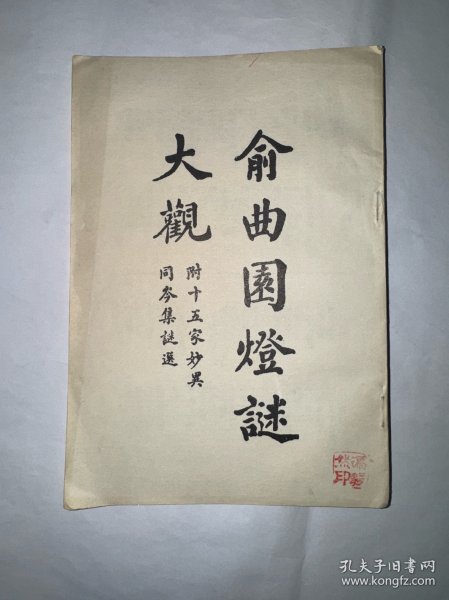 俞曲園燈謎
大觀
附十五家妙契
同岑集謎選
孔夫子旧书网
www.kongfz.com